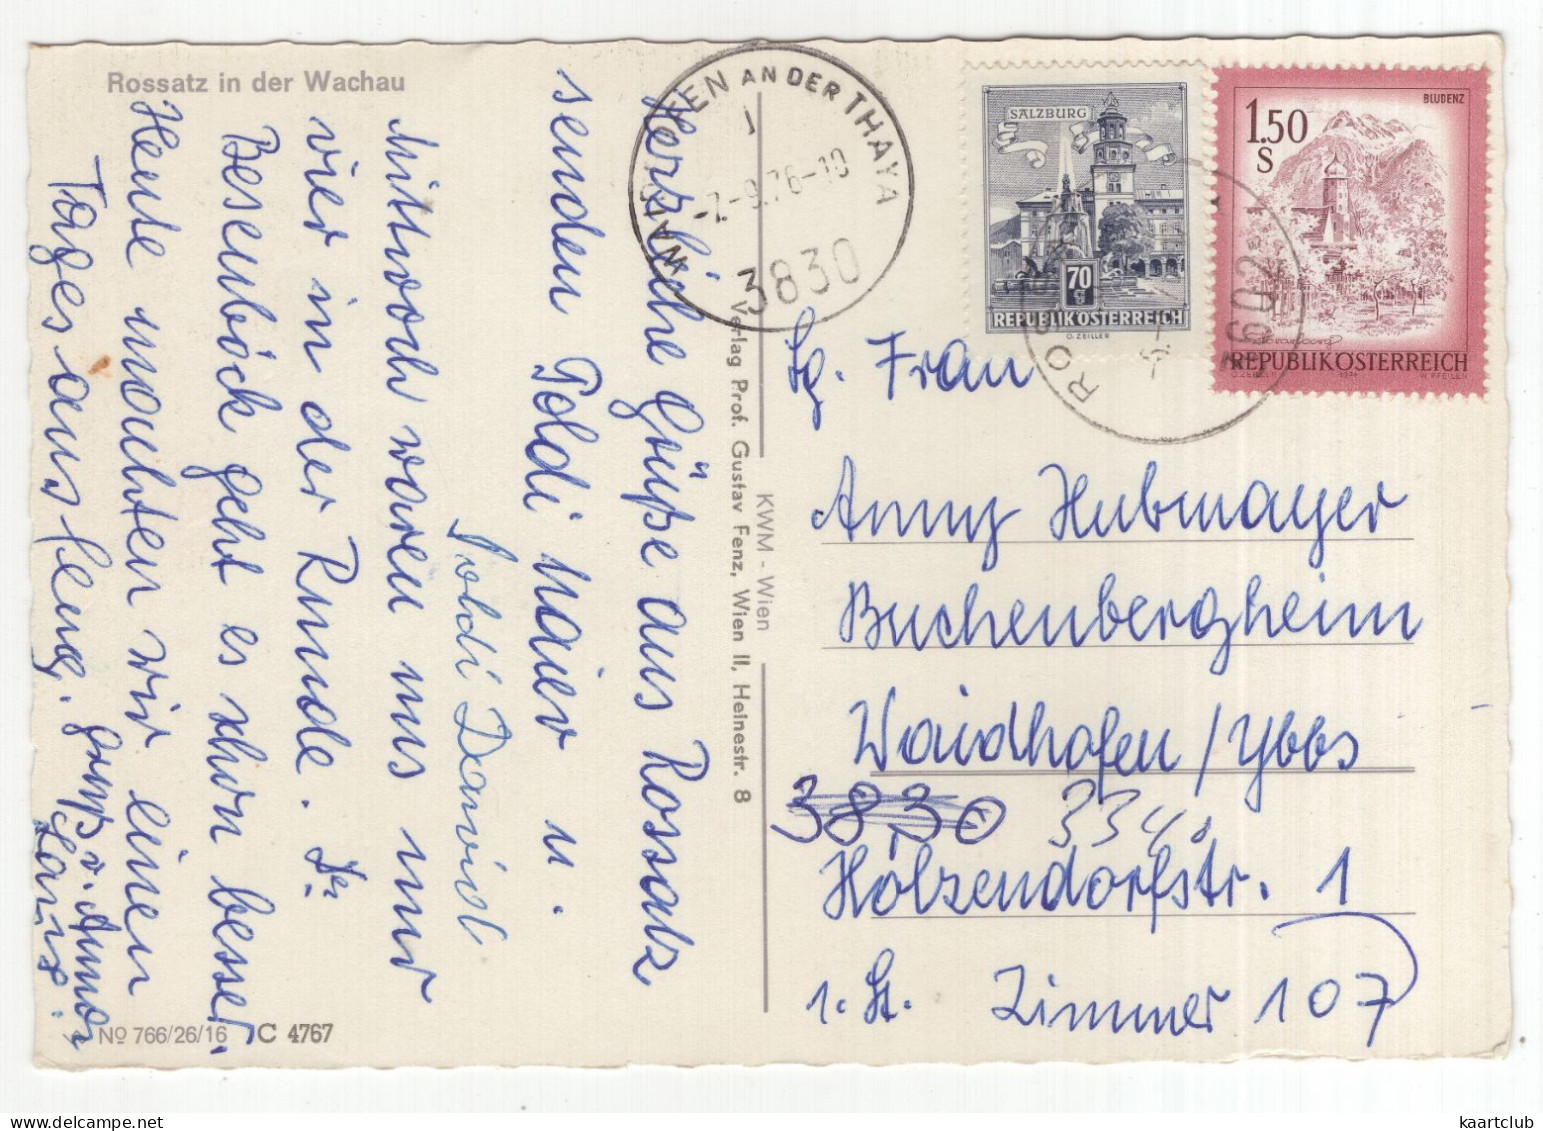 Rossatz in der Wachau
Herzliche Grüße aus Rossatz
senden Poldi Maier u.
Poldi David
Mittwoch waren uns nur
vier in der Runde. Dr
Besenböck geht es schon besser.
Heute machten wir einen
Tagesausflug. Gruß v. Anna
Nº 766/26/16 C 4767
Verlag Prof. Gustav Fenz, Wien II, Heinestr. 8
KWM - Wien
WAIDHOFEN AN DER THAYA
1
-7.-9.76-10
3830
SALZBURG
70
g
REPUBLIK ÖSTERREICH
O. ZEILLER
BLUDENZ
1.50
S
Vorarlberg
REPUBLIK ÖSTERREICH
3602
Sg. Frau
Anny Hubmayer
Buchenbergheim
Waidhofen/Ybbs
3830 3340
Hölzendorfstr. 1
1. St. Zimmer 107
kaartclub